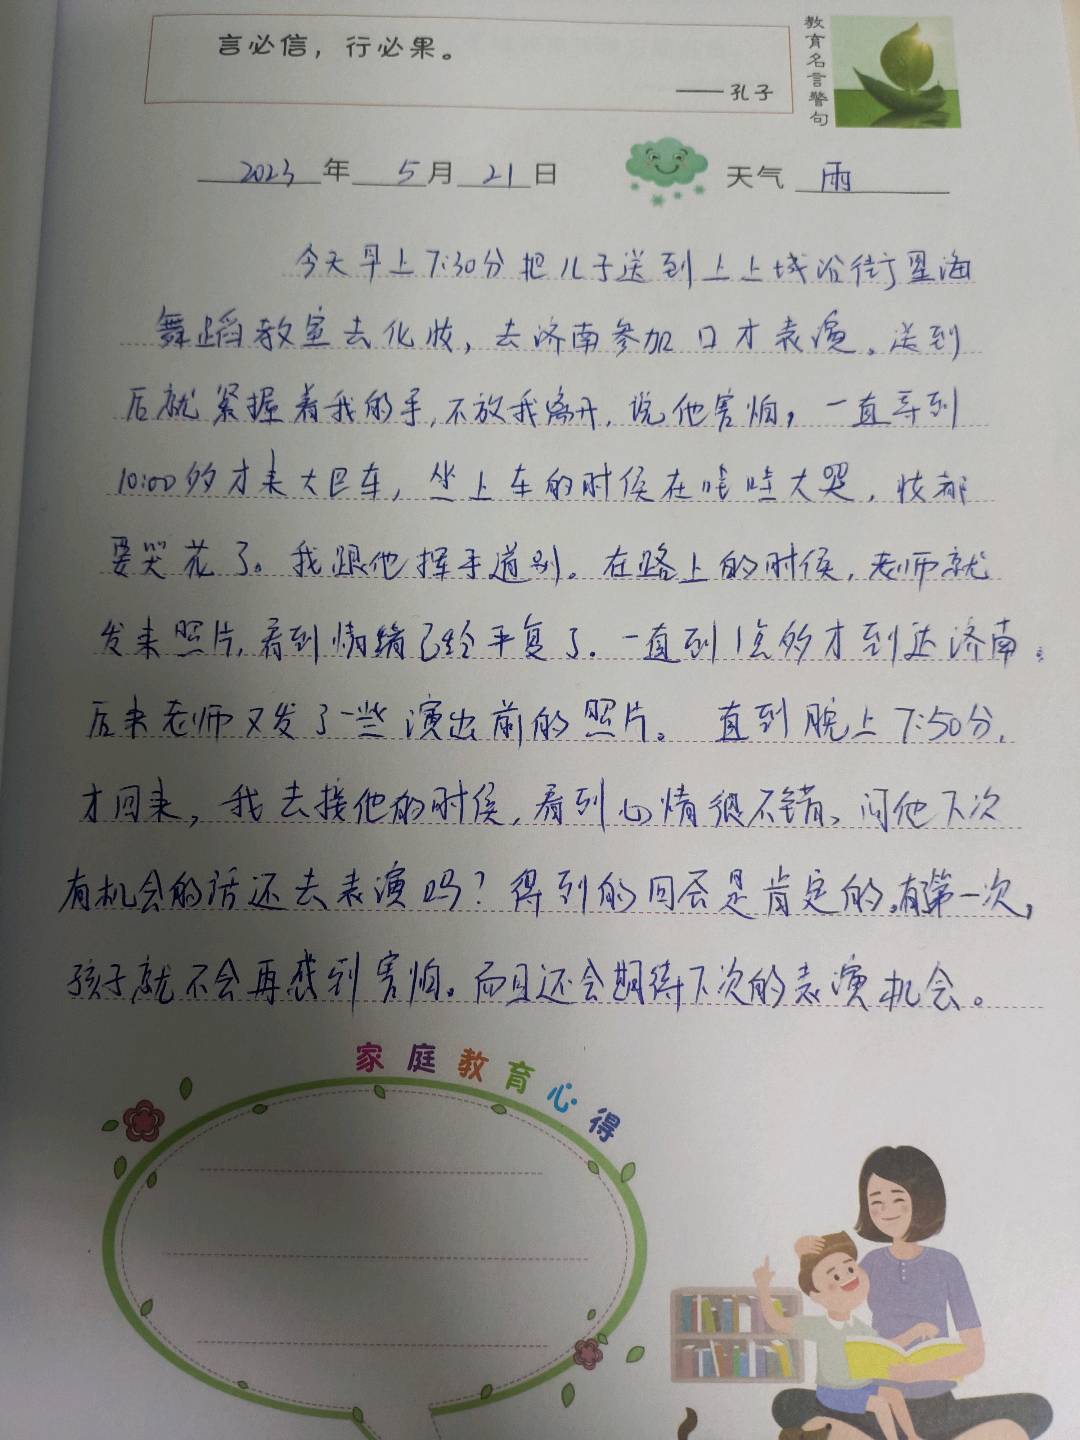 言必信，行必果。
——孔子
教育名言警句
2023年5月21日 天气 雨
今天早上7:30分把儿子送到上上城沿街星海
舞蹈教室去化妆，去济南参加口才表演。送到
后就紧握着我的手，不放我离开，说他害怕，一直等到
10:00多才来大巴车，坐上车的时候在哇哇大哭，妆都
要哭花了。我跟他挥手道别。在路上的时候，老师就
发来照片，看到情绪已经平复了。一直到1点多才到达济南。
后来老师又发了一些演出前的照片。直到晚上7:50分，
才回来，我去接他的时候，看到心情很不错、问他下次
有机会的话还去表演吗？得到的回答是肯定的，有第一次，
孩子就不会再感到害怕。而且还会期待下次的表演机会。
家庭教育心得